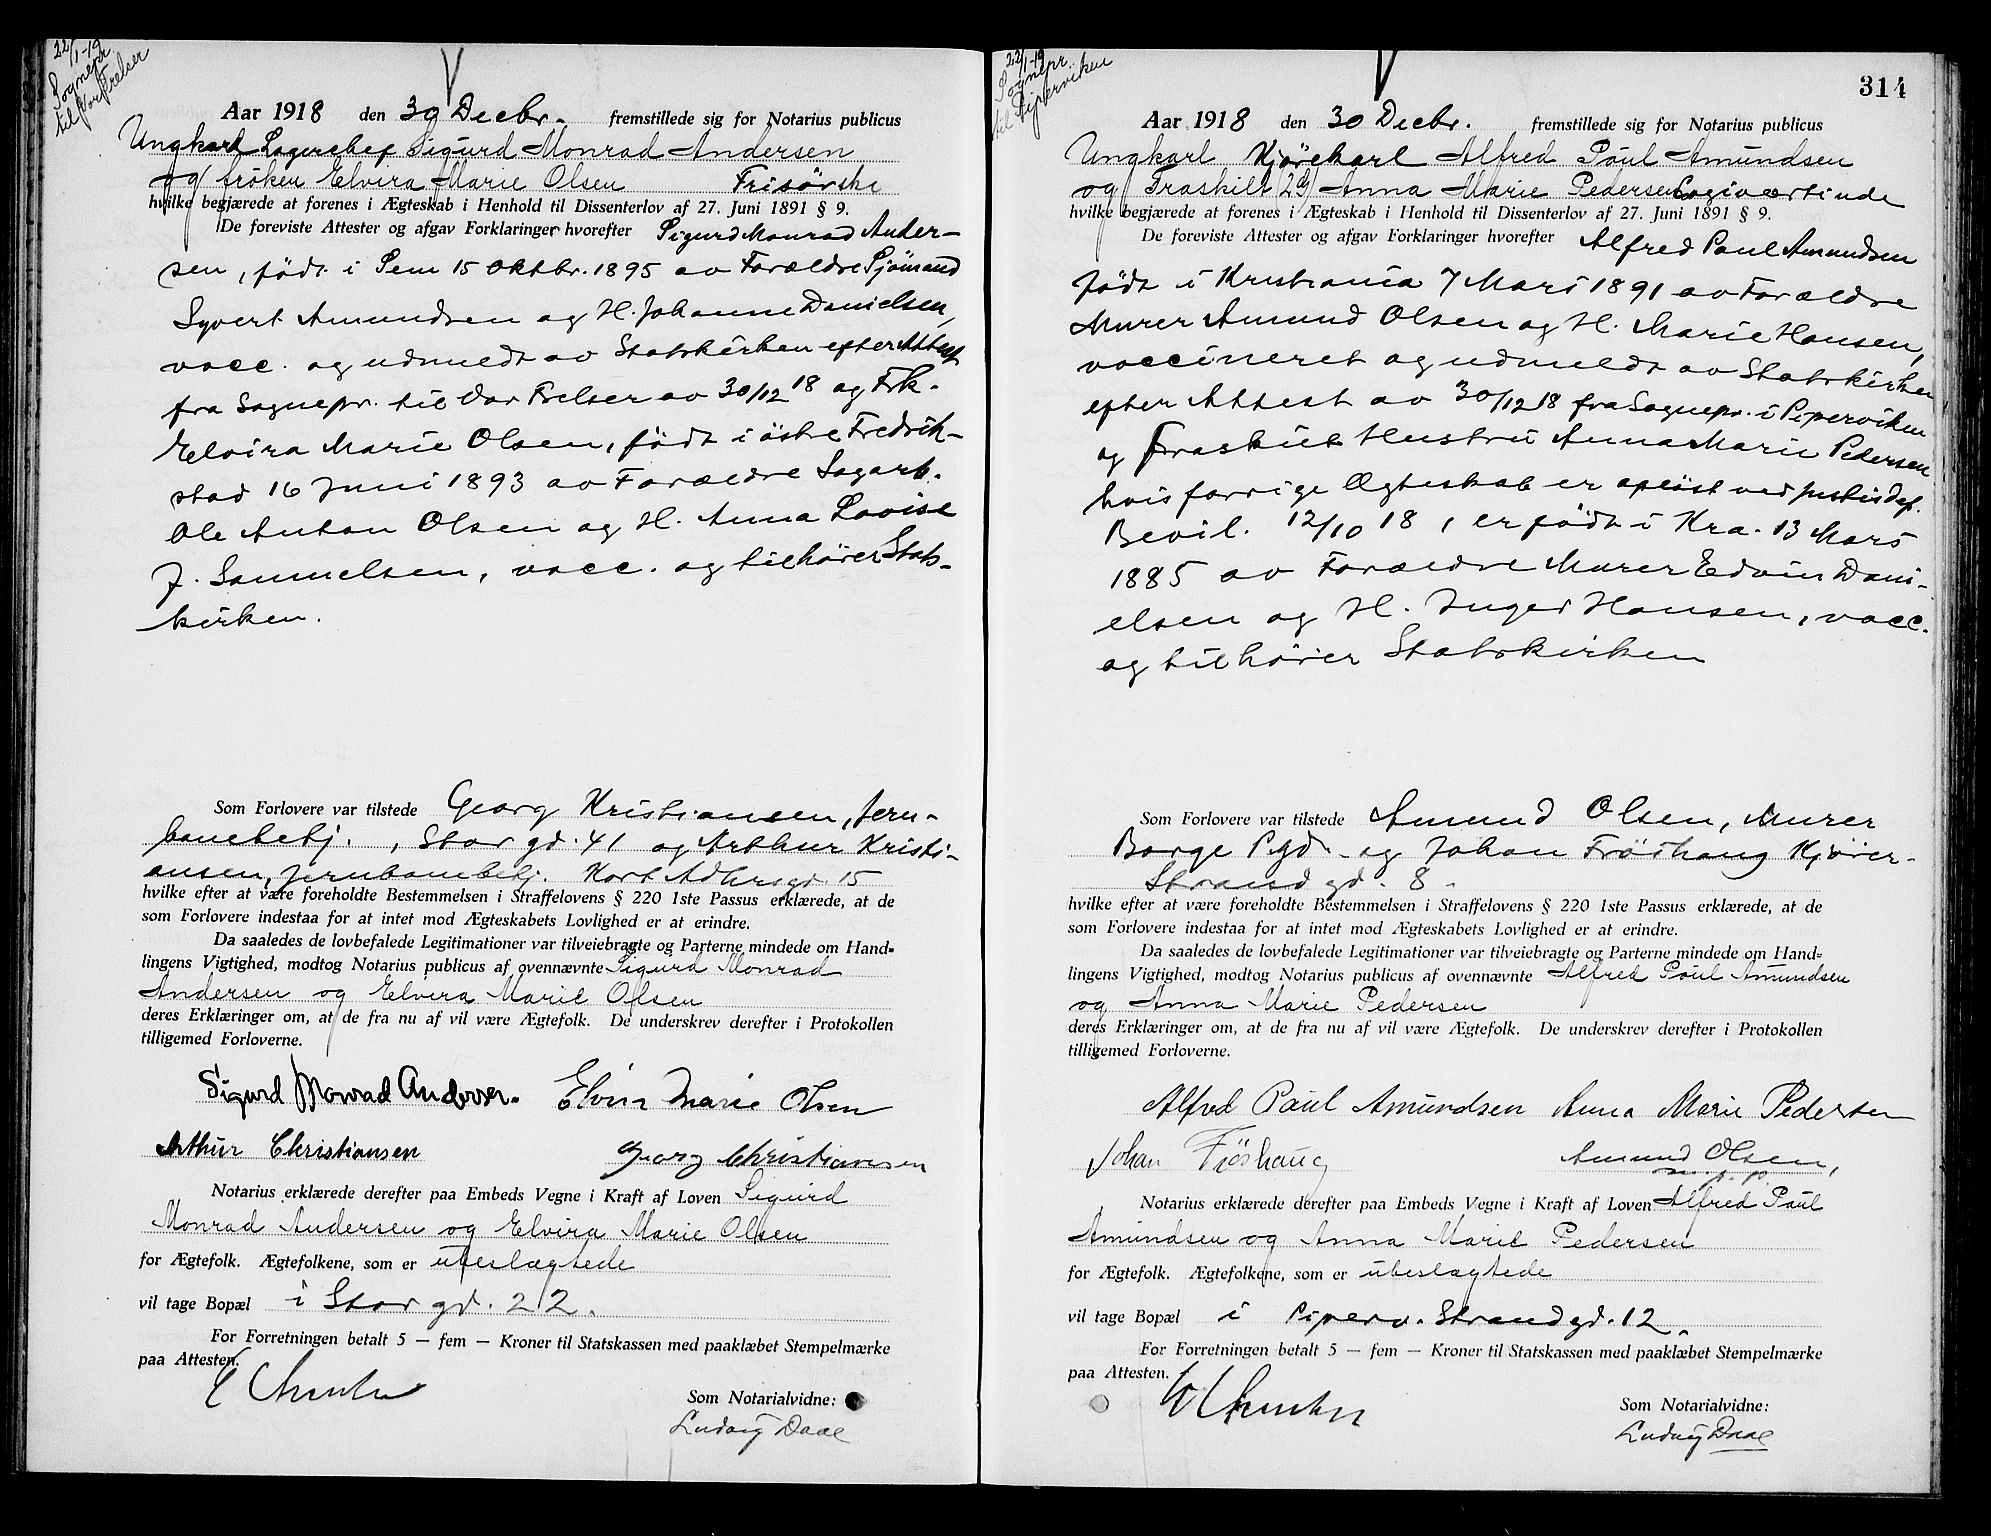 22/1-19
Sognepr.
til Vor Frelser
Aar 1918 den 30 Decbr. fremstillede sig for Notarius publicus
Ungkarl Lagerchef Sigurd Monrad Andersen
og frøken Elvira Marie Olsen Frisörske
hvilke begjærede at forenes i Ægteskab i Henhold til Dissenterlov af 27. Juni 1891 § 9.
De foreviste Attester og afgav Forklaringer hvorefter Sigurd Monrad Ander-
sen, födt i Sem 15 Oktbr. 1895 av Forældre Sjömand
Syvert Amundsen og H. Johanne Danielsen,
vacc. og udmeldt av Statskirken efter Attest
fra Sognepr. til Vor Frelser av 30/12 18 og Frk.
Elvira Marie Olsen, födt i östre Fredrik-
stad 16 Juni 1893 av Forældre Sagarb.
Ole Anton Olsen og H. Anna Lovise
J. Samuelsen, vacc. og tilhörer Stats-
kirken.
Som Forlovere var tilstede Georg Kristiansen, Jern-
banebetj., Stor gd. 41 og Arthur Kristi-
ansen, Jernbanebetj. Kort Adlersgd. 15
hvilke efter at være foreholdte Bestemmelsen i Straffelovens § 220 1ste Passus erklærede, at de
som Forlovere indestaa for at intet mod Ægteskabets Lovlighed er at erindre.
Da saaledes de lovbefalede Legitimationer var tilveiebragte og Parterne mindede om Hand-
lingens Vigtighed, modtog Notarius publicus af ovennævnte Sigurd Monrad
Andersen og Elvira Marie Olsen
deres Erklæringer om, at de fra nu af vil være Ægtefolk. De underskrev derefter i Protokollen
tilligemed Forloverne.
Sigurd Monrad Andersen. Elvira Marie Olsen
Arthur Christiansen Georg Christiansen
Notarius erklærede derefter paa Embeds Vegne i Kraft af Loven Sigurd
Monrad Andersen og Elvira Marie Olsen
for Ægtefolk. Ægtefolkene, som er ubeslægtede
vil tage Bopæl i Stor gd. 22.
For Forretningen betalt 5 — fem — Kroner til Statskassen med paaklæbet Stempelmærke
paa Attesten.
Som Notarialvidne:
Ludvig Daae
22/1-19
Sognepr.
til Piperviken
314
Aar 1918 den 30 Decbr. fremstillede sig for Notarius publicus
Ungkarl Kjörekarl Alfred Paul Amundsen
og Fraskilt Anna Marie Pedersen Logivertinde
hvilke begjærede at forenes i Ægteskab i Henhold til Dissenterlov af 27. Juni 1891 § 9.
De foreviste Attester og afgav Forklaringer hvorefter Alfred Paul Amundsen
födt i Kristiania 7 Mars 1891 av Forældre
Murer Amund Olsen og H. Marie Hansen,
vaccineret og udmeldt av Statskirken
efter Attest av 30/12 18 fra Sognepr. i Piperviken
og Fraskilt Hustru Anna Marie Pedersen
hvis forrige Ægteskab er oplöst ved Justisdep.
Bevil. 12/10 18, er födt i Kra. 13 Mars
1885 av Forældre Murer Edvin Dani-
elsen og H. Inger Hansen, vacc.
og tilhörer Statskirken
Som Forlovere var tilstede Amund Olsen, Murer
Borge Pgd. og Johan Fröshaug Kjörer-
Strand gd. 8.
hvilke efter at være foreholdte Bestemmelsen i Straffelovens § 220 1ste Passus erklærede, at de
som Forlovere indestaa for at intet mod Ægteskabets Lovlighed er at erindre.
Da saaledes de lovbefalede Legitimationer var tilveiebragte og Parterne mindede om Hand-
lingens Vigtighed, modtog Notarius publicus af ovennævnte Alfred Paul Amundsen
og Anna Marie Pedersen
deres Erklæringer om, at de fra nu af vil være Ægtefolk. De underskrev derefter i Protokollen
tilligemed Forloverne.
Alfred Paul Amundsen Anna Marie Pedersen
Johan Fröshaug Amund Olsen,
m. p. p.
Notarius erklærede derefter paa Embeds Vegne i Kraft af Loven Alfred Paul
Amundsen og Anna Marie Pedersen
for Ægtefolk. Ægtefolkene, som er ubeslægtede
vil tage Bopæl i Piperv. Strandgd. 12.
For Forretningen betalt 5 — fem — Kroner til Statskassen med paaklæbet Stempelmærke
paa Attesten.
Som Notarialvidne:
Ludvig Daae